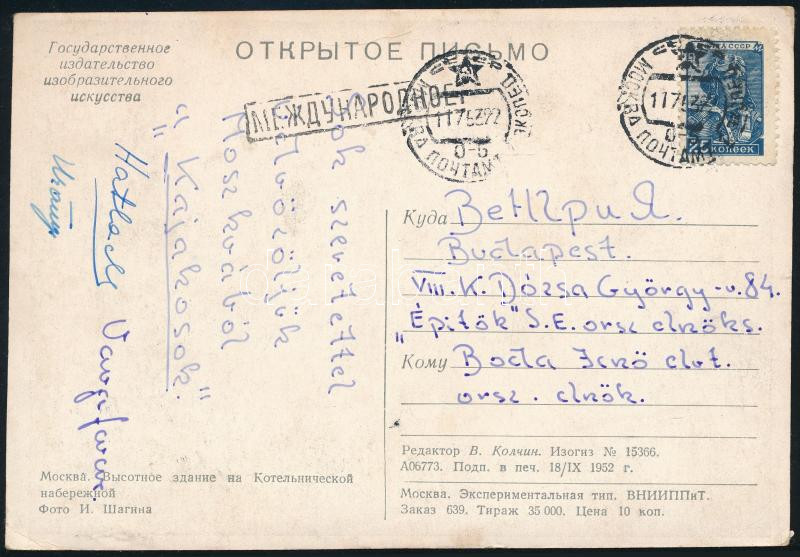 Государственное
издательство
изобразительного
искусства
ОТКРЫТОЕ ПИСЬМО
МЕЖДУНАРОДНОЕ
МОСКВА ПОЧТАМТ
МОСКВА ПОЧТАМТ
25 КОПЕЕК
Sok szeretettel
üdvözöljük
Moszkvából
"Kajakosok."
Hatlaczky
Varga Ferenc
Urányi
Куда Венгрия.
Budapest.
VIII. K. Dózsa György-u. 84.
„Épitök" S.E. orsz elnöks.
Кому Boda Jenő elvt.
orsz. elnök.
Редактор В. Колчин. Изогиз № 15366.
А06773. Подп. в печ. 18/IX 1952 г.
Москва. Экспериментальная тип. ВНИИППиТ.
Заказ 639. Тираж 35 000. Цена 10 коп.
Москва. Высотное здание на Котельнической
набережной
Фото И. Шагина